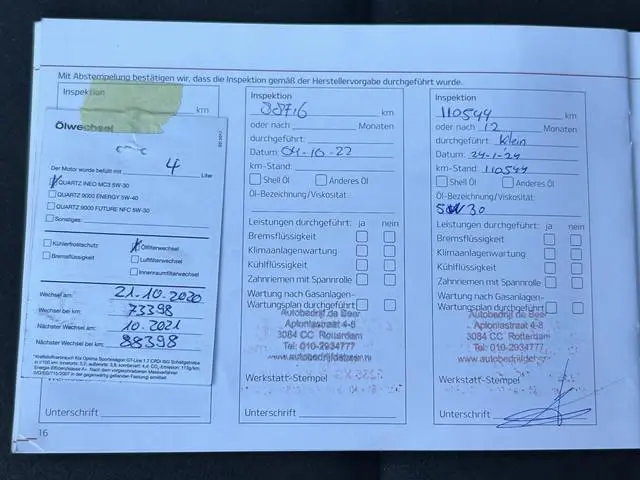 Mit Abstempelung bestätigen wir, dass die Inspektion gemäß der Herstellervorgabe durchgeführt wurde.
Inspektion
km
Ölwechsel
Der Motor wurde befüllt mit 4 Liter
QUARTZ INEO MC3 5W-30
QUARTZ 9000 ENERGY 5W-40
QUARTZ 9000 FUTURE NFC 5W-30
Sonstiges:
Kühlerfrostschutz
Ölfilterwechsel
Bremsflüssigkeit
Luftfilterwechsel
Innenraumfilterwechsel
Wechsel am: 21.10.2020
Wechsel bei km: 73398
Nächster Wechsel am: 10.2021
Nächster Wechsel bei km: 88398
Werkstatt-Stempel
Unterschrift
16
Inspektion
88716 km
oder nach Monaten
durchgeführt:
Datum: 04-10-22
km-Stand:
Shell Öl Anderes Öl
Öl-Bezeichnung/Viskosität:
Leistungen durchgeführt: ja nein
Bremsflüssigkeit
Klimaanlagenwartung
Kühlflüssigkeit
Zahnriemen mit Spannrolle
Wartung nach Gasanlagen-
Wartungsplan durchgeführt
Autobedrijf de Beer
Aploniastraat 4-8
3084 CC Rotterdam
Tel: 010-2934777
www.autobedrijfdebeer.nl
Werkstatt-Stempel
Unterschrift
Inspektion
110544 km
oder nach 12 Monaten
durchgeführt: Klein
Datum: 24-1-24
km-Stand: 110544
Shell Öl Anderes Öl
Öl-Bezeichnung/Viskosität:
5W30
Leistungen durchgeführt: ja nein
Bremsflüssigkeit
Klimaanlagenwartung
Kühlflüssigkeit
Zahnriemen mit Spannrolle
Wartung nach Gasanlagen-
Wartungsplan durchgeführt
Autobedrijf de Beer
Aploniastraat 4-8
3084 CC Rotterdam
Tel: 010-2934777
www.autobedrijfde
Werkstatt-Stempel
Unterschrift